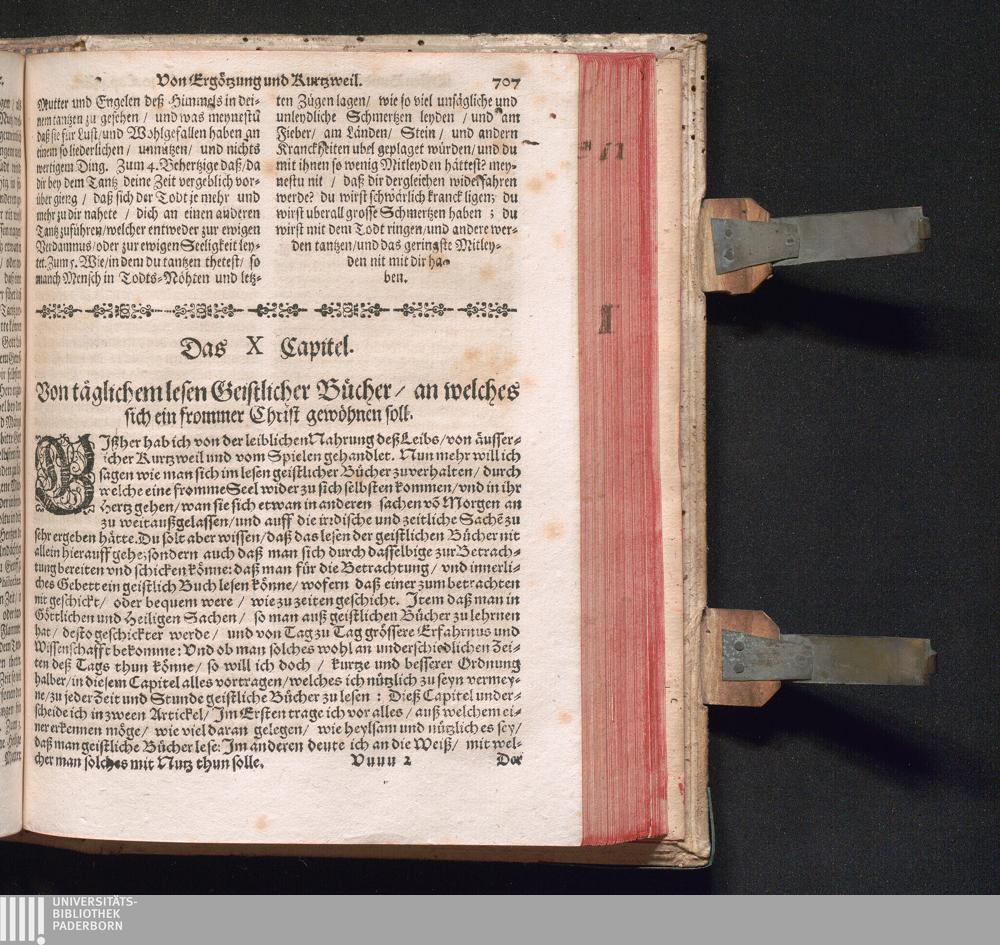 Von Ergötzung und Kurtzweil. 707
Mutter und Engelen deß Himmels in dei-
nem tantzen zu gesehen / und was meynestu
daß sie für Lust/und Wohlgefallen haben an
einem so liederlichen / unnützen/ und nichts
wertigem Ding. Zum 4. Behertzige daß/da
dir bey dem Tantz deine Zeit vergeblich vor-
über gieng / daß sich der Todt je mehr und
mehr zu dir nahete / dich an einen anderen
Tantz zuführen/welcher entweder zur ewigen
Verdamnus/oder zur ewigen Seeligkeit ley-
tet. Zum 5. Wie/in dem du tantzen thetest/ so
manch Mensch in Todts-Nöhten und letz-
ten Zügen lagen/ wie so viel unsägliche und
unleydliche Schmertzen leyden / und am
Fieber/ am Länden/ Stein / und andern
Kranckheiten ubel geplaget würden/und du
mit ihnen so wenig Mitleyden hättest? mey-
nestu nit / daß dir dergleichen widerfahren
werde? du wirst schwärlich kranck ligen; du
wirst uberall grosse Schmertzen haben ; du
wirst mit dem Todt ringen/und andere wer-
den tantzen/und das geringste Mitley-
den nit mit dir ha-
ben.
Das X Capitel.
Von täglichem lesen Geistlicher Bücher/ an welches
sich ein frommer Christ gewöhnen soll.
BIßher hab ich von der leiblichen Nahrung deß Leibs/von äusser-
licher Kurtzweil und vom Spielen gehandlet. Nun mehr will ich
sagen wie man sich im lesen geistlicher Bücher zuverhalten/ durch
welche eine fromme Seel wider zu sich selbsten kommen/vnd in ihr
Hertz gehen/wan sie sich etwan in anderen sachen võ Morgen an
zu weit außgelassen/und auff die irdische und zeitliche Sachẽ zu
sehr ergeben hätte. Du solt aber wissen/daß das lesen der geistlichen Bücher nit
allein hierauff gehe; sondern auch daß man sich durch dasselbige zur Betrach-
tung bereiten vnd schicken könne: daß man für die Betrachtung/ vnd innerli-
ches Gebett ein geistlich Buch lesen könne/ wofern daß einer zum betrachten
nit geschickt/ oder bequem were / wie zu zeiten geschicht. Item daß man in
Göttlichen und Heiligen Sachen/ so man auß geistlichen Bücher zu lehrnen
hat / desto geschickter werde / und von Tag zu Tag grössere Erfahrnus und
Wissenschafft bekomme: Vnd ob man solches wohl an underschiedlichen Zei-
ten deß Tags thun könne/ so will ich doch / kurtze und besserer Ordnung
halber/ in diesem Capitel alles vortragen/ welches ich nützlich zu seyn vermey-
ne/zu jeder Zeit und Stunde geistliche Bücher zu lesen : Dieß Capitel under-
scheide ich in zween Artickel/ Im Ersten trage ich vor alles / auß welchem ei-
ner erkennen möge/ wie viel daran gelegen/ wie heylsam und nützlich es sey/
daß man geistliche Bücher lese: Im anderen deute ich an die Weiß/ mit wel-
cher man solches mit Nutz thun solle.
Vuuu 2 Der
UNIVERSITÄTS-
BIBLIOTHEK
PADERBORN